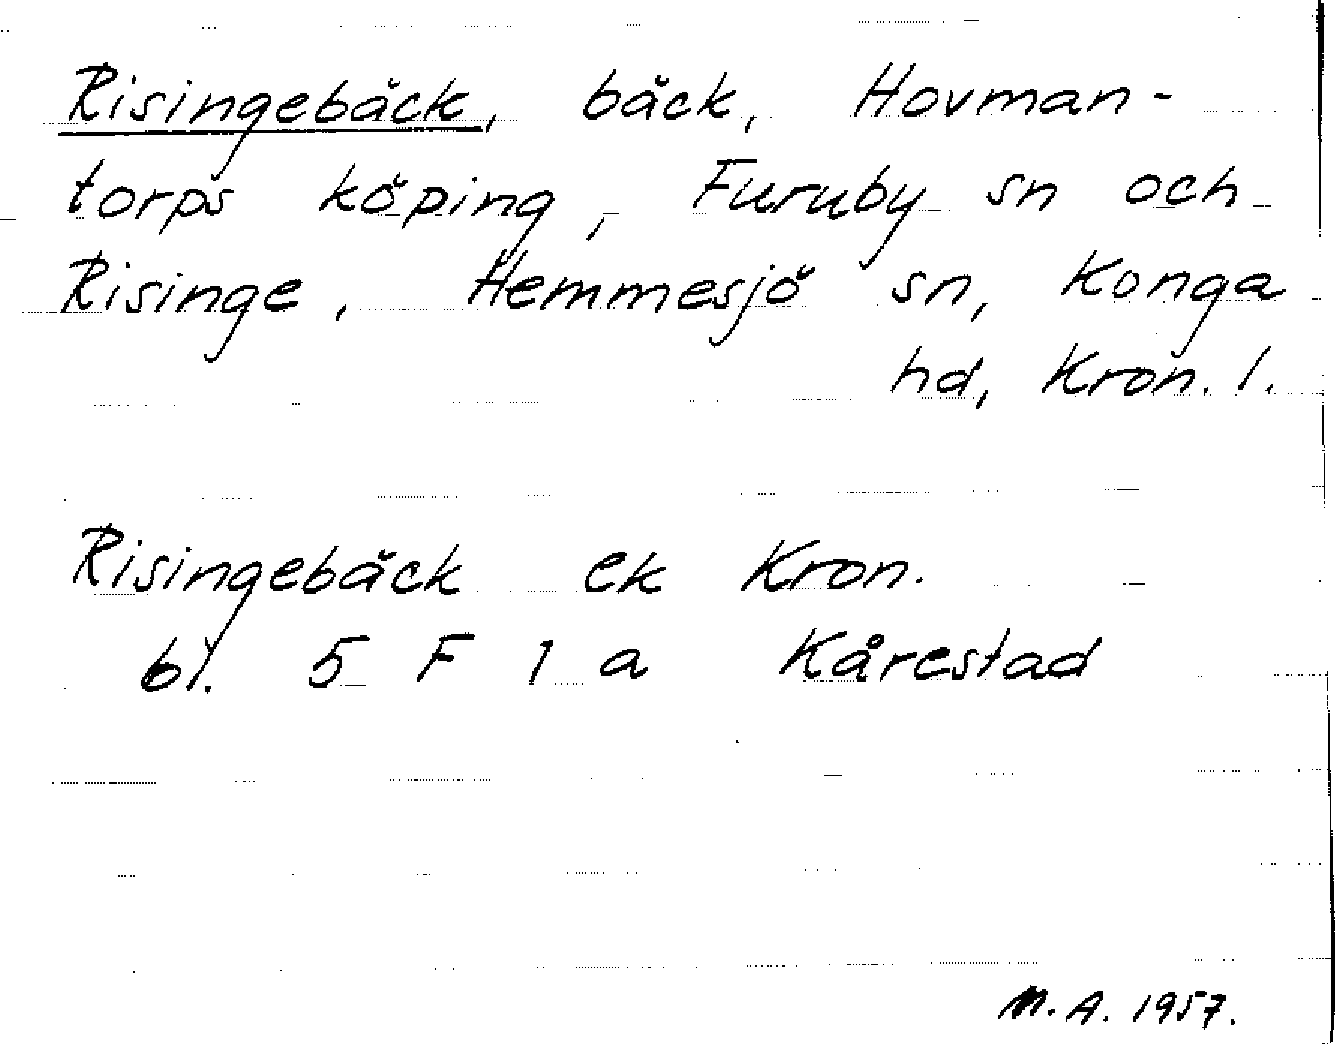 Risingebäck, bäck, Hovman-
torps köping, Furuby sn och
Risinge, Hemmesjö sn, Konga
hd, Kron. l.
Risingebäck ek Kron.
bl. 5 F 1 a Kårestad
M. A. 1957.